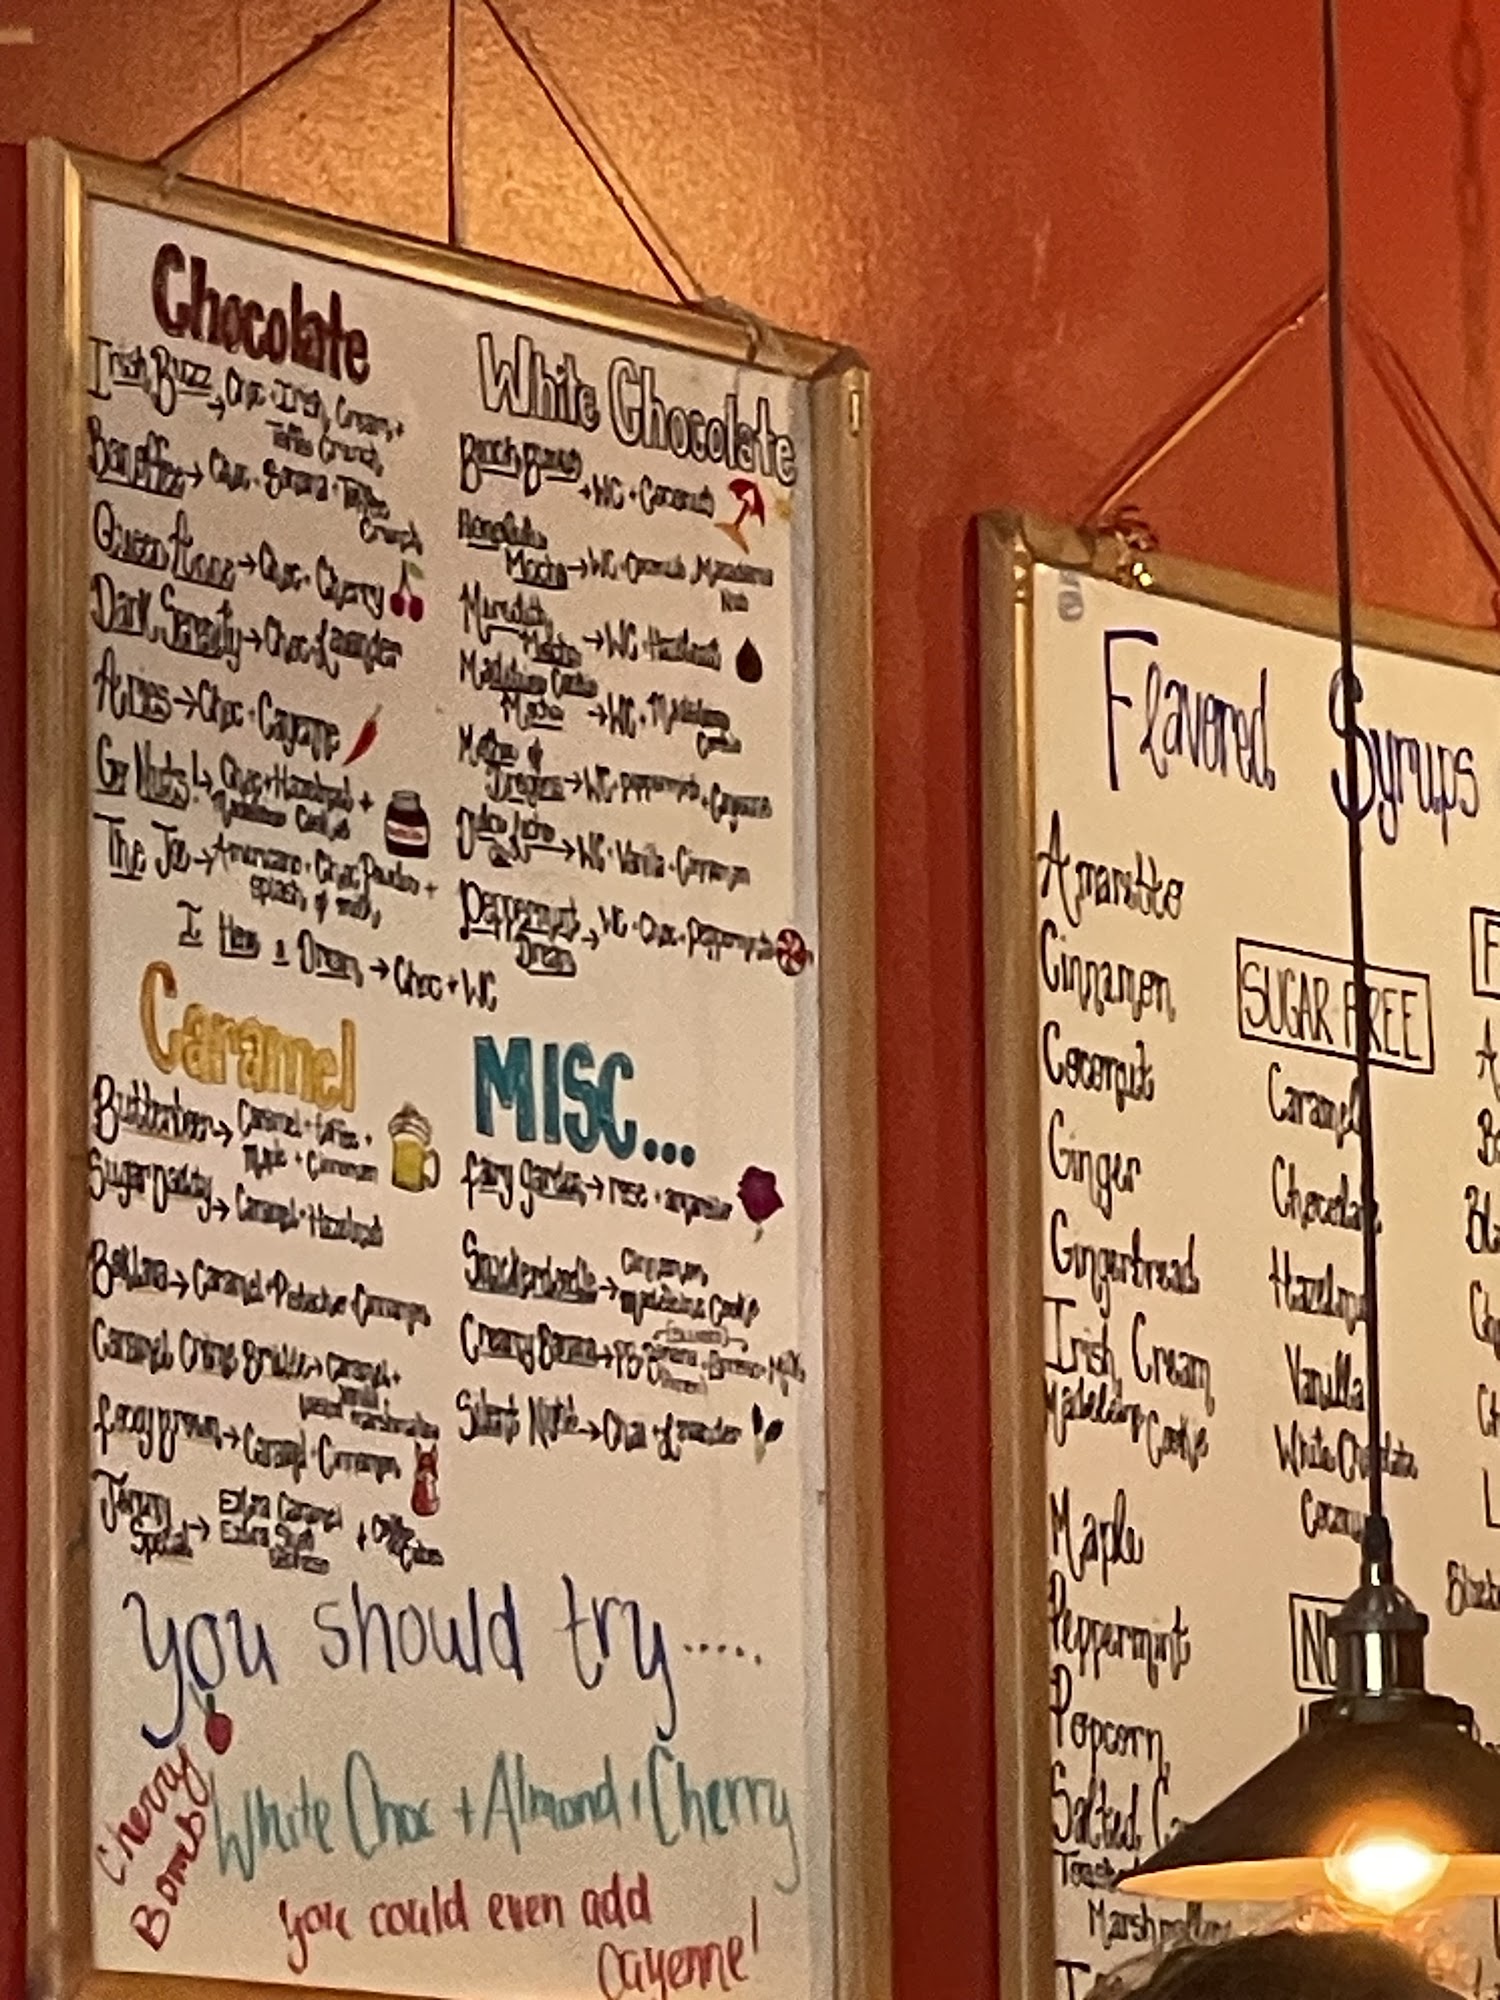 Chocolate
Irish Buzz → Choc + Irish Cream +
Toffee Crunch
Banoffee → Choc + Banana + Toffee
Crunch
Queen Anne → Choc + Cherry
Dark Serenity → Choc + Lavender
Aries → Choc + Cayenne
Go Nuts! ↳ Choc + Hazelnut +
Madeleine Cookie
The Joe → Americano + Choc Powder +
splash of milk
I Have a Dream → Choc + WC
White Chocolate
Beach Bunny
→ WC + Coconut
Honolulu
Mocha → WC + Coconut, Macadamia
Nut
Meredith
Mocha → WC + Hazelnut
Madeleine Cookie
Mocha → WC + Madeleine
Cookie
Mocha of
Dragons → WC + peppermint + Cayenne
Dulce Leche → WC + Vanilla + Cinnamon
Peppermint
Dream → WC + Choc + Peppermint
Caramel
Butterbeer → Caramel + toffee +
Maple + Cinnamon
Sugar Daddy → Caramel + Hazelnut
Baklava → Caramel + Pistachio + Cinnamon
Caramel Crème Brulée → Caramel +
Vanilla
toasted marshmallow
foxy brown → Caramel + Cinnamon
Special → Extra Caramel
Extra
+ Coffee
Cubes
MISC...
fairy garden → rose +
Snickerdoodle → Cinnamon,
madeleine Cookie
→ PB + Banana + Espresso + Milk
Silent Night → Chai + Lavender
you should try.....
Cherry
Bomb
White Choc + Almond + Cherry
you could even add
Cayenne!
Flavored Syrups
Amaretto
Cinnamon
Coconut
Ginger
Gingerbread
Irish Cream
Madeleine Cookie
Maple
Peppermint
Popcorn
Salted
Toasted
Marshmallow
SUGAR FREE
Caramel
Chocolate
Hazelnut
Vanilla
White Chocolate
Coconut